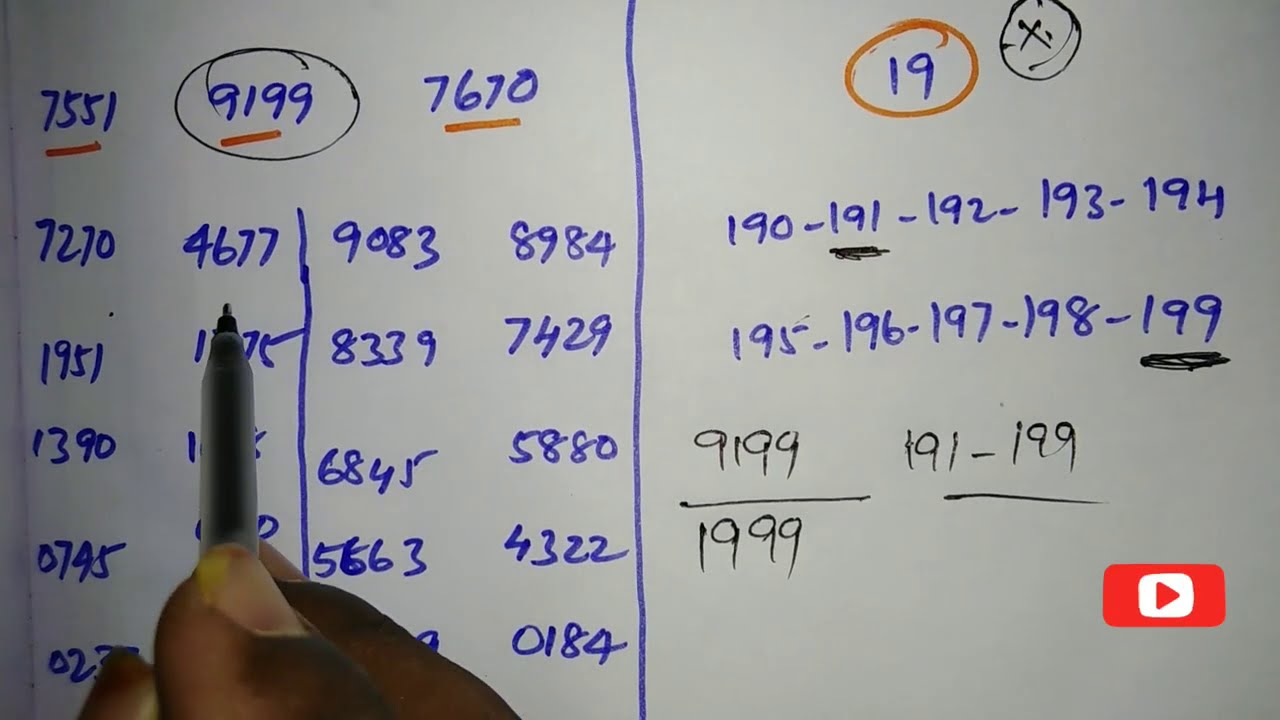 7551 9199 7670
7270 4677 9083 8984
1951 8339 7429
1390 6845 5880
0745 5663 4322
0184
19 X
190-191-192-193-194
195-196-197-198-199
9199 191-199
1999